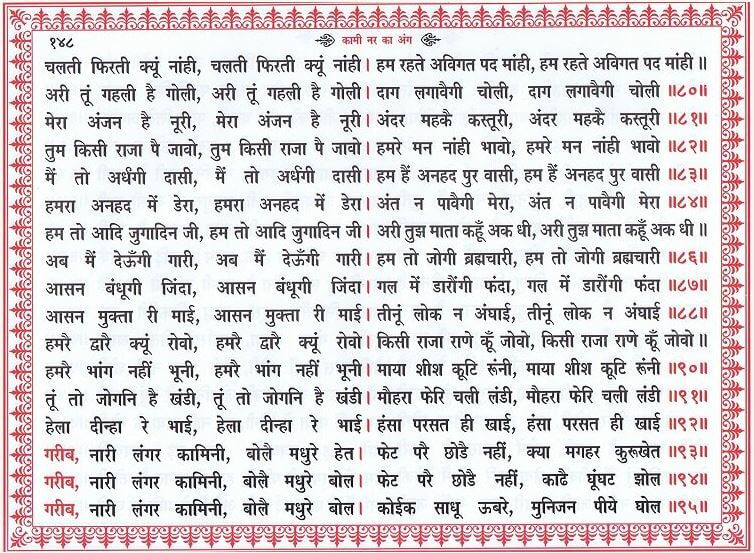 १४८ कामी नर का अंग
चलती फिरती क्यूं नांही, चलती फिरती क्यूं नांही। हम रहते अविगत पद मांही, हम रहते अविगत पद मांही॥
अरी तूं गहली है गोली, अरी तूं गहली है गोली। दाग लगावैगी चोली, दाग लगावैगी चोली॥८०॥
मेरा अंजन है नूरी, मेरा अंजन है नूरी। अंदर महकै कस्तूरी, अंदर महकै कस्तूरी॥८१॥
तुम किसी राजा पै जावो, तुम किसी राजा पै जावो। हमरे मन नांही भावो, हमरे मन नांही भावो॥८२॥
मैं तो अर्धंगी दासी, मैं तो अर्धंगी दासी। हम हैं अनहद पुर वासी, हम हैं अनहद पुर वासी॥८३॥
हमरा अनहद में डेरा, हमरा अनहद में डेरा। अंत न पावैगी मेरा, अंत न पावैगी मेरा॥८४॥
हम तो आदि जुगादिन जी, हम तो आदि जुगादिन जी। अरी तुझ माता कहूँ अक धी, अरी तुझ माता कहूँ अक धी॥
अब मैं देऊँगी गारी, अब मैं देऊँगी गारी। हम तो जोगी ब्रह्मचारी, हम तो जोगी ब्रह्मचारी॥८६॥
आसन बंधूगी जिंदा, आसन बंधूगी जिंदा। गल में डारौंगी फंदा, गल में डारौंगी फंदा॥८७॥
आसन मुक्ता री माई, आसन मुक्ता री माई। तीनूं लोक न अंघाई, तीनूं लोक न अंघाई॥८८॥
हमरै द्वारै क्यूं रोवो, हमरै द्वारै क्यूं रोवो। किसी राजा राणे कूँ जोवो, किसी राजा राणे कूँ जोवो॥
हमरै भांग नहीं भूनी, हमरै भांग नहीं भूनी। माया शीश कूटि रूंनी, माया शीश कूटि रूंनी॥९०॥
तूं तो जोगनि है खंडी, तूं तो जोगनि है खंडी। मौहरा फेरि चली लंडी, मौहरा फेरि चली लंडी॥९१॥
हेला दीन्हा रे भाई, हेला दीन्हा रे भाई। हंसा परसत ही खाई, हंसा परसत ही खाई॥९२॥
गरीब, नारी लंगर कामिनी, बोलै मधुरे हेत। फेट परै छोडै नहीं, क्या मगहर कुरूखेत॥९३॥
गरीब, नारी लंगर कामिनी, बोलै मधुरे बोल। फेट परै छोडै नहीं, काढै घूंघट झोल॥९४॥
गरीब, नारी लंगर कामिनी, बोलै मधुरे बोल। कोईक साधू ऊबरे, मुनिजन पीये घोल॥९५॥